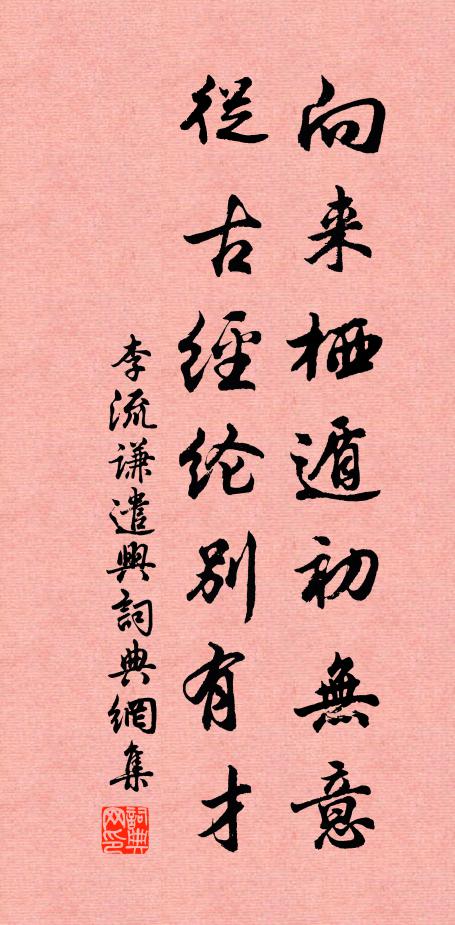 向来栖遁初無意
從古經纶别有才
李流谦遣興詞典網集
詞典网印